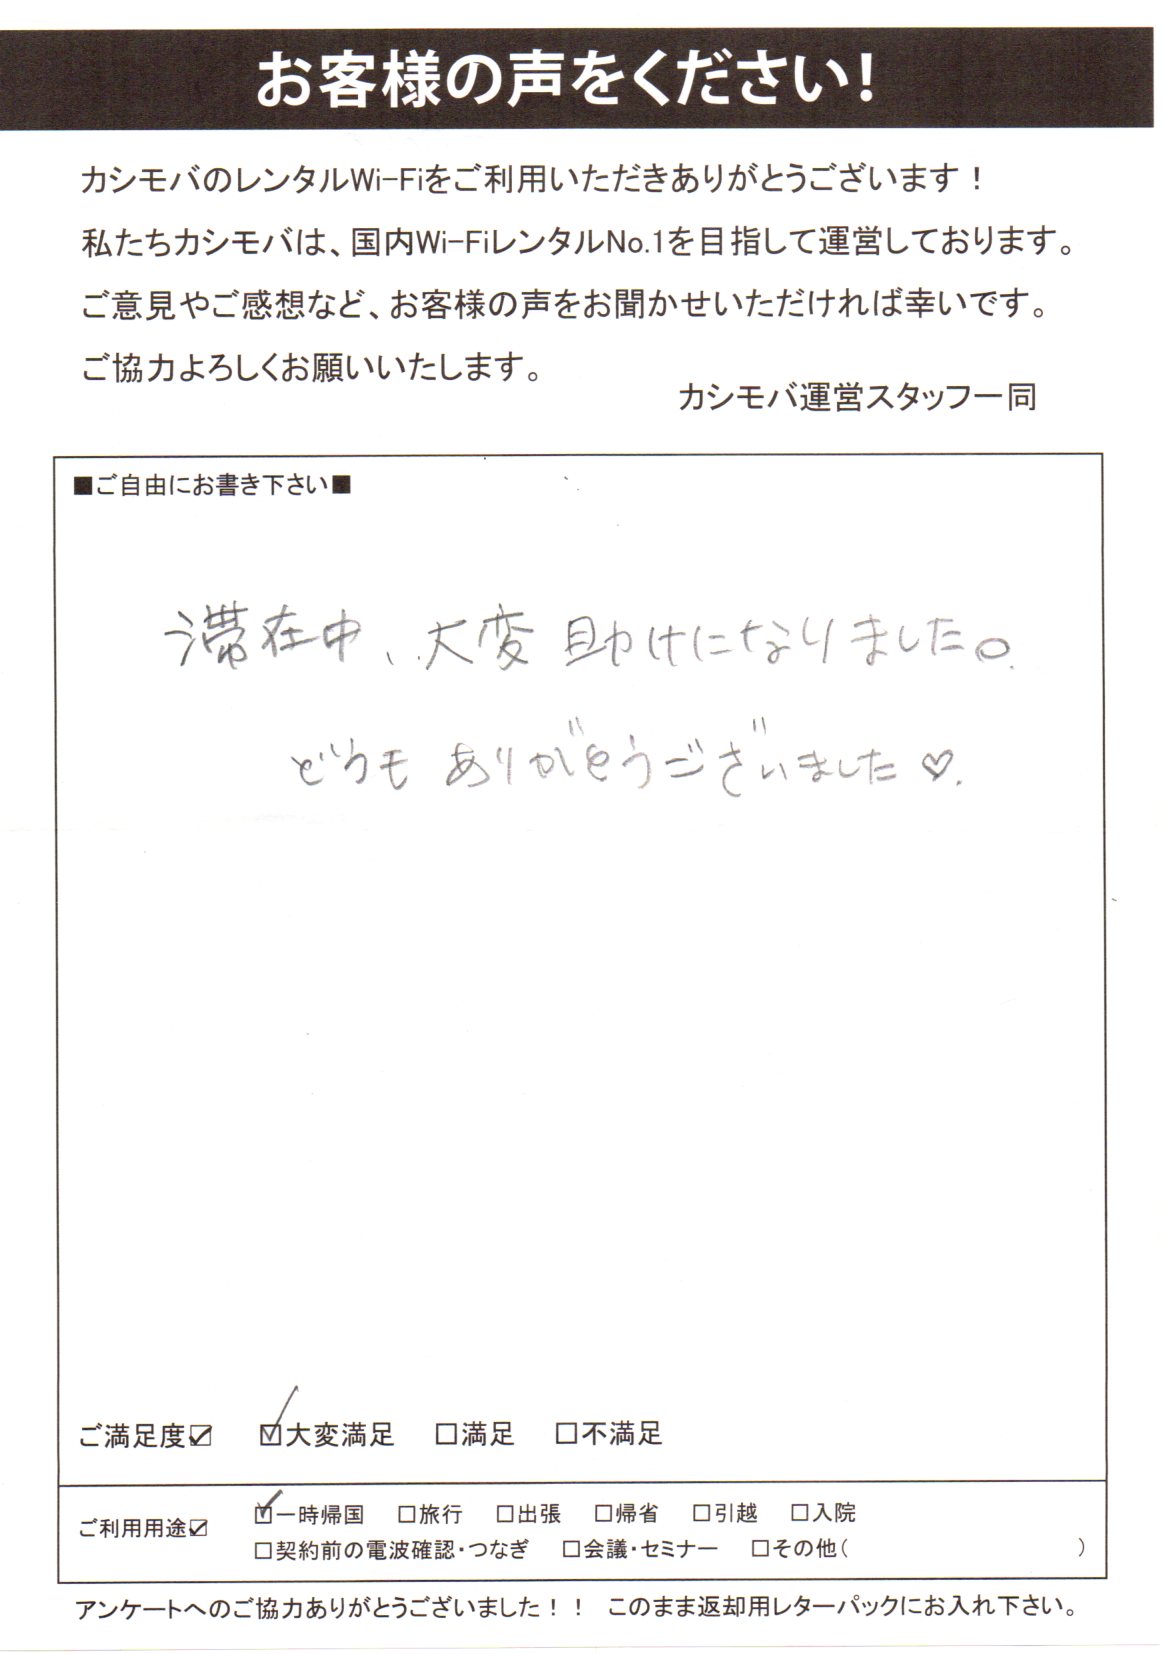 お客様の声をください！
カシモバのレンタルWi-Fiをご利用いただきありがとうございます！
私たちカシモバは、国内Wi-FiレンタルNo.1を目指して運営しております。
ご意見やご感想など、お客様の声をお聞かせいただければ幸いです。
ご協力よろしくお願いいたします。
カシモバ運営スタッフ一同
■ご自由にお書き下さい■
滞在中、大変助けになりました。
どうもありがとうございました♡.
ご満足度☑ ☑大変満足 □満足 □不満足
ご利用用途☑ ☑一時帰国 □旅行 □出張 □帰省 □引越 □入院
□契約前の電波確認・つなぎ □会議・セミナー □その他( )
アンケートへのご協力ありがとうございました！！ このまま返却用レターパックにお入れ下さい。